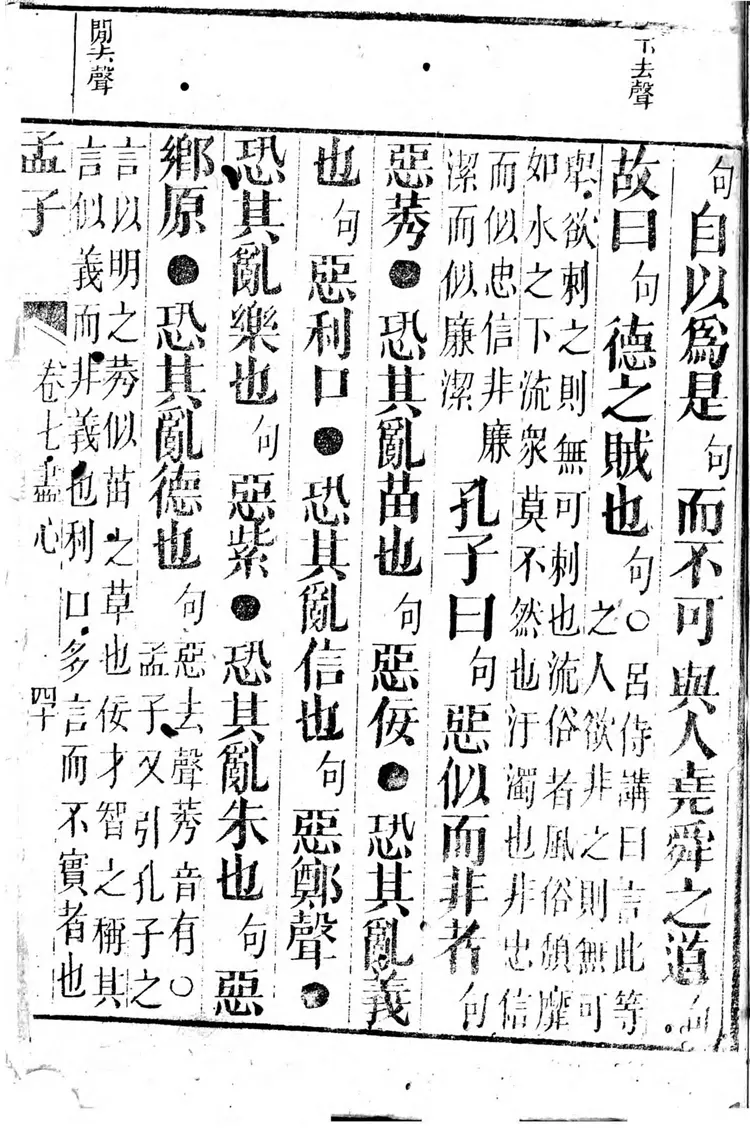 下去聲
閒去聲
句自以爲是句而不可與人堯舜之道句
故曰句德之賊也句○呂侍講曰言此等
之人欲非之則無可
舉欲刺之則無可刺也流俗者風俗頹靡
如水之下流衆莫不然也汙濁也非忠信
而似忠信非廉
潔而似廉潔
孔子曰句惡似而非者句
惡莠●恐其亂苗也句惡佞●恐其亂義
也句惡利口●恐其亂信也句惡鄭聲●
恐其亂樂也句惡紫●恐其亂朱也句惡
鄉原●恐其亂德也句惡去聲莠音有○
孟子又引孔子之
言以明之莠似苗之草也佞才智之稱其
言似義而非義也利口多言而不實者也
孟子 卷七盡心 四十